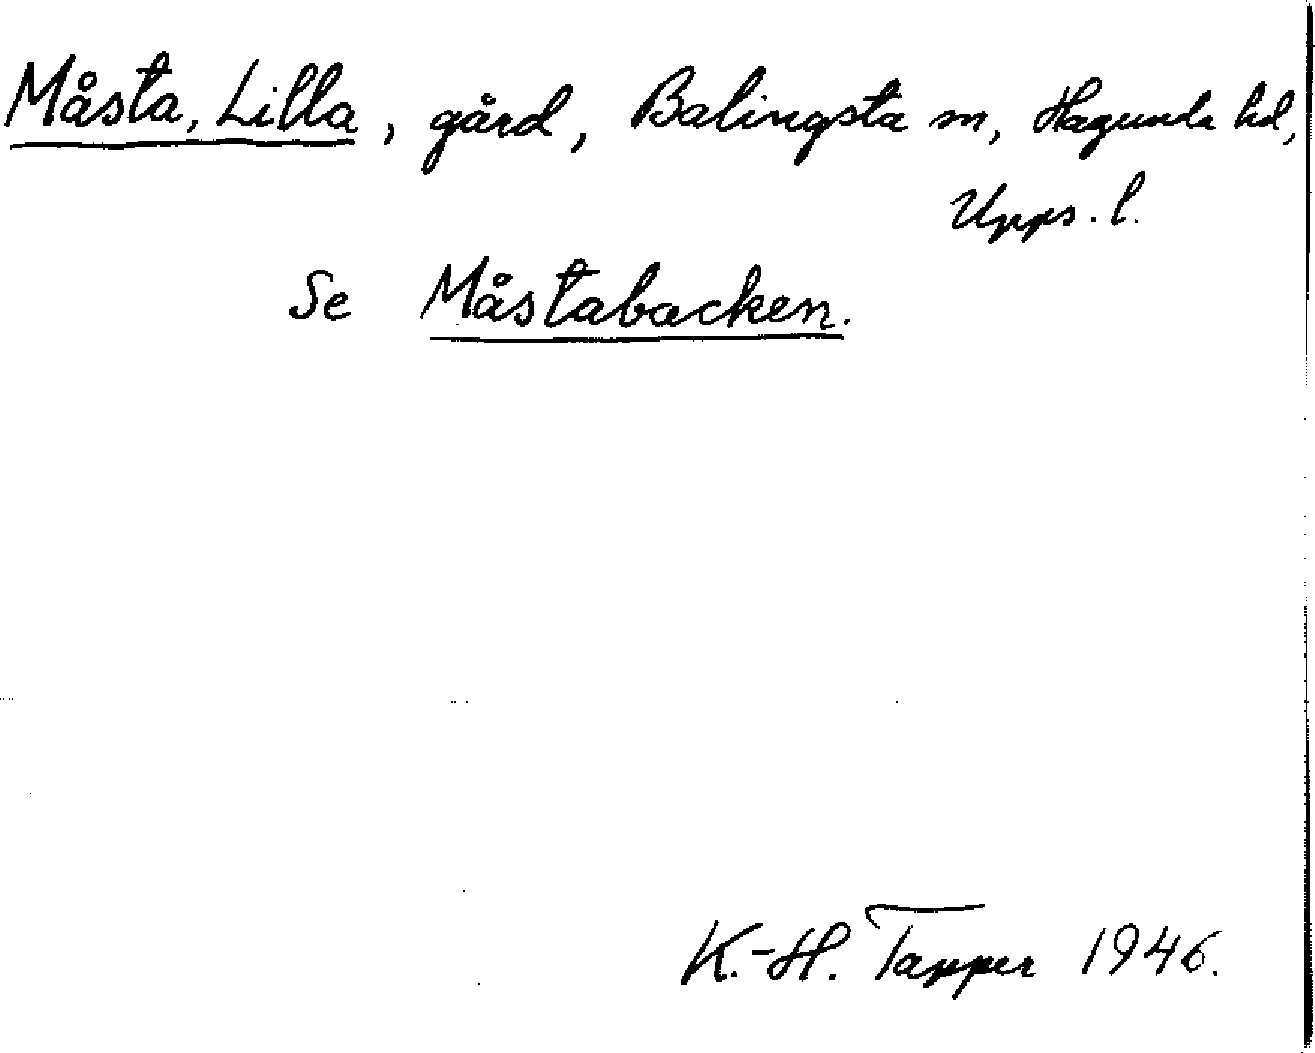 Måsta, Lilla, gård, Balingsta sn, Hagunda hd,
Upps. l.
Se Måstabacken.
K.-H. Tapper 1946.